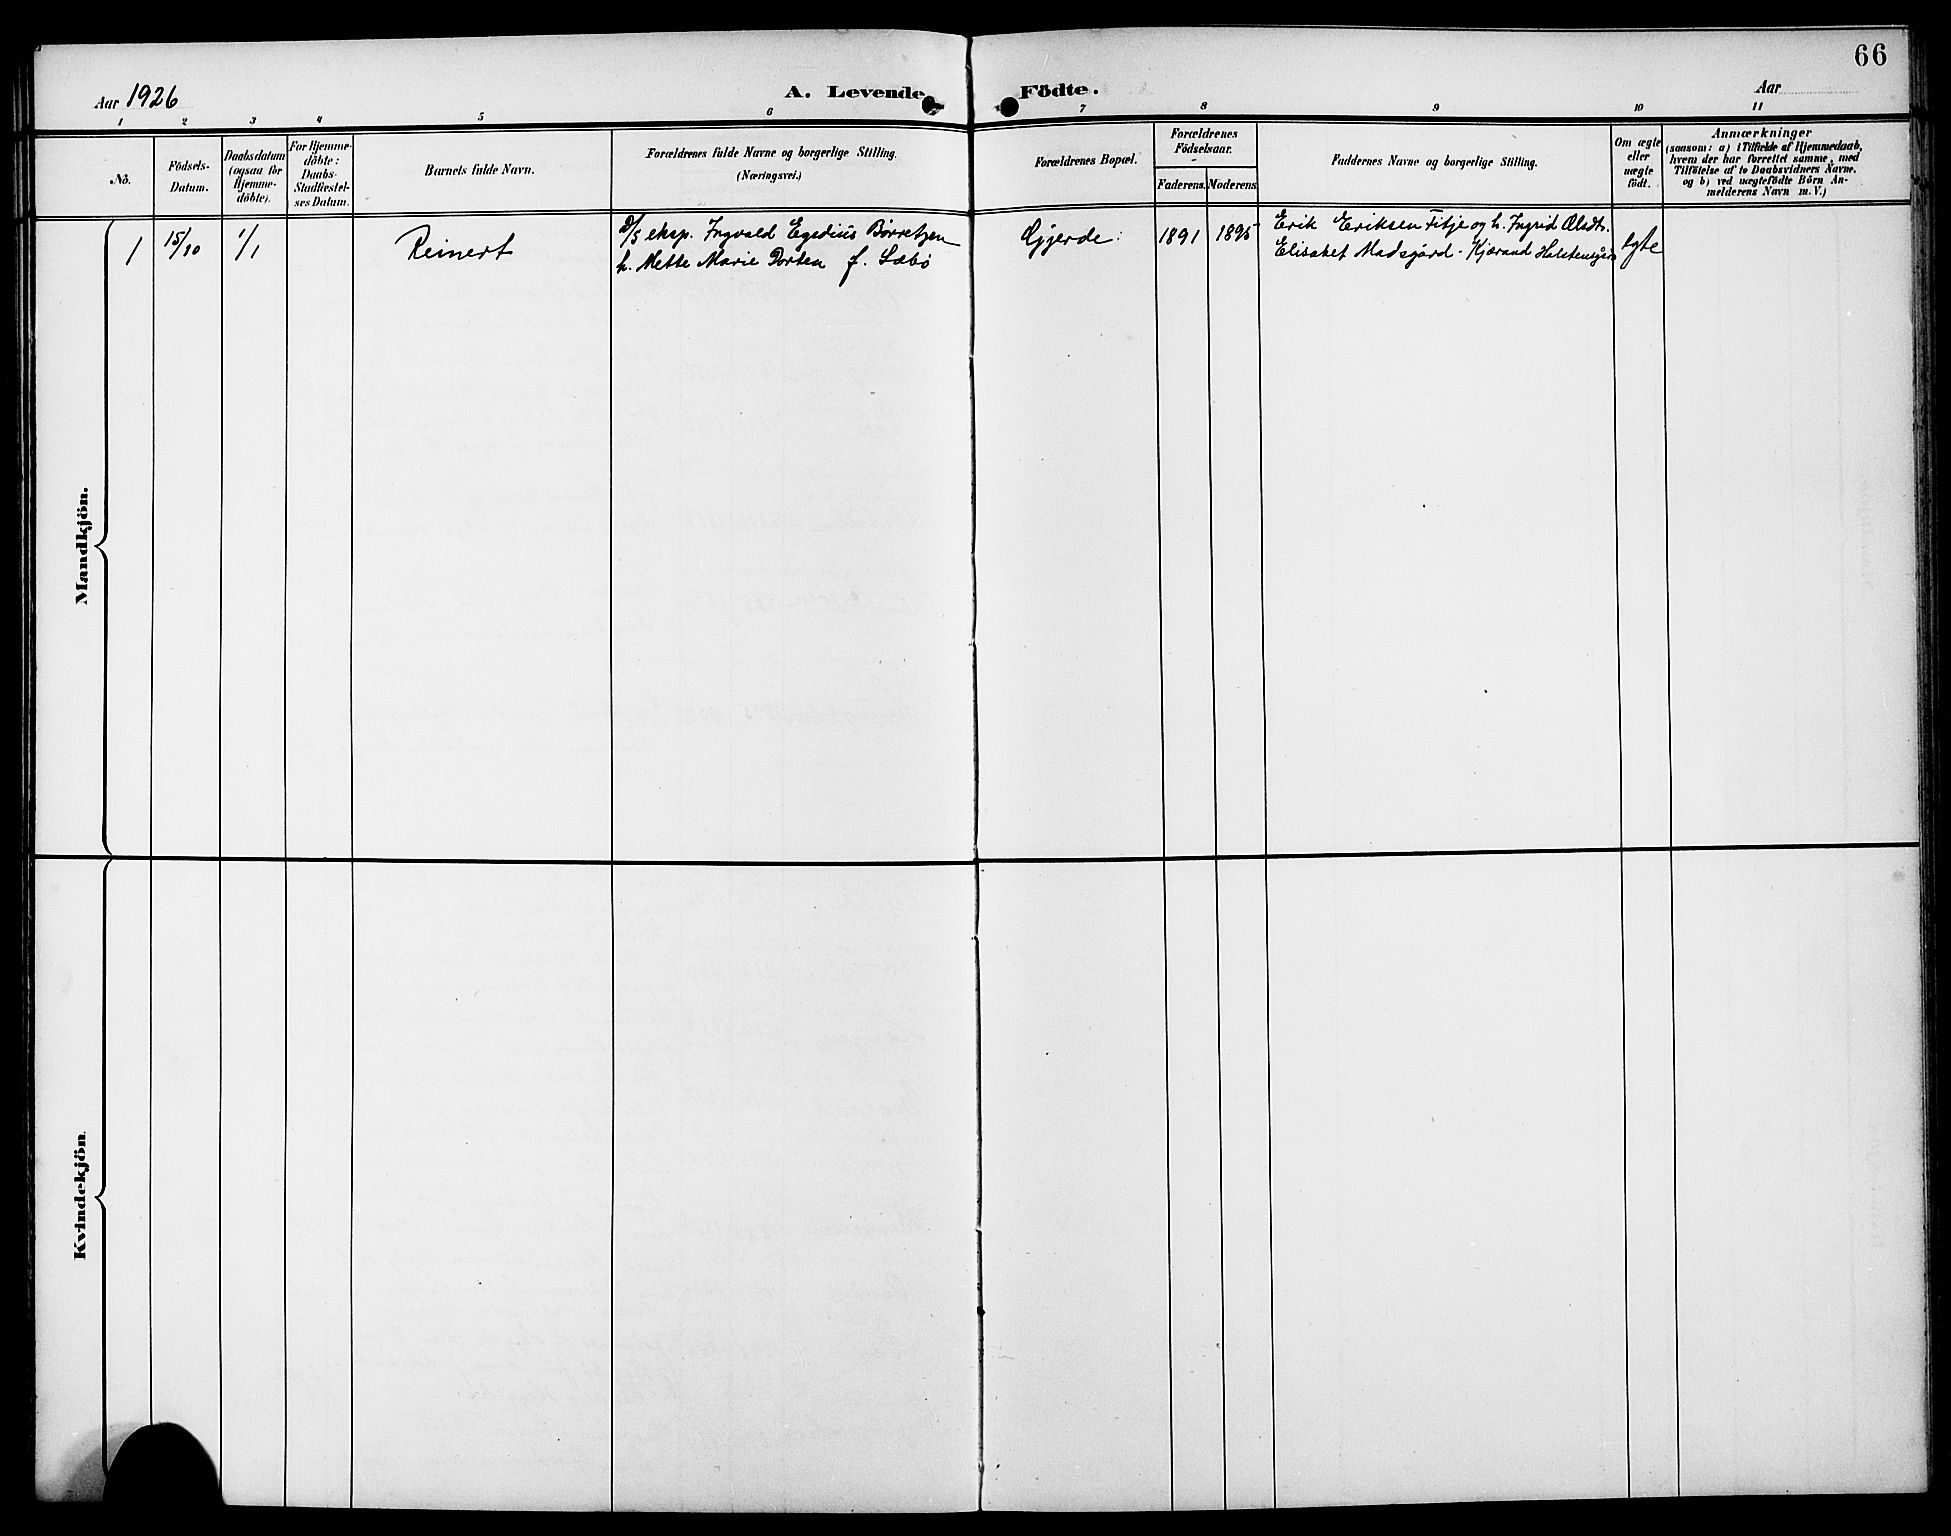 66
Aar 1926
A. Levende
Födte.
Aar
1 2 3 4 5 6 7 8 9 10 11
No.
Födsels-
Datum.
Daabsdatum
(ogsaa for
Hjemme-
döbte).
For Hjemme-
döbte:
Daabs-
Stadfæstel-
ses Datum.
Barnets fulde Navn.
Forældrenes fulde Navne og borgerlige Stilling.
(Næringsvei.)
Forældrenes Bopæl.
Forældrenes
Födselsaar.
Faderens. Moderens.
Faddernes Navne og borgerlige Stilling.
Om ægte
eller
uægte
födt.
Anmærkninger
(saasom: a) i Tilfælde af Hjemmedaab,
hvem der har forrettet samme, med
Tilföielse af to Daabsvidners Navne.
og b) ved uægtefödte Börn An-
melderens Navn m. V.)
Mandkjön.
1
15/10
1/1
Reinert
D/S eksp. Ingvald Egedius Børretzen
h. Mette Marie Dortea f. Sæbø
Gjerde:
1891
1895
Erik Eriksen Fitje og h. Ingrid
Elisabet Madsgård - Kjærand
Egte
Kvindekjön